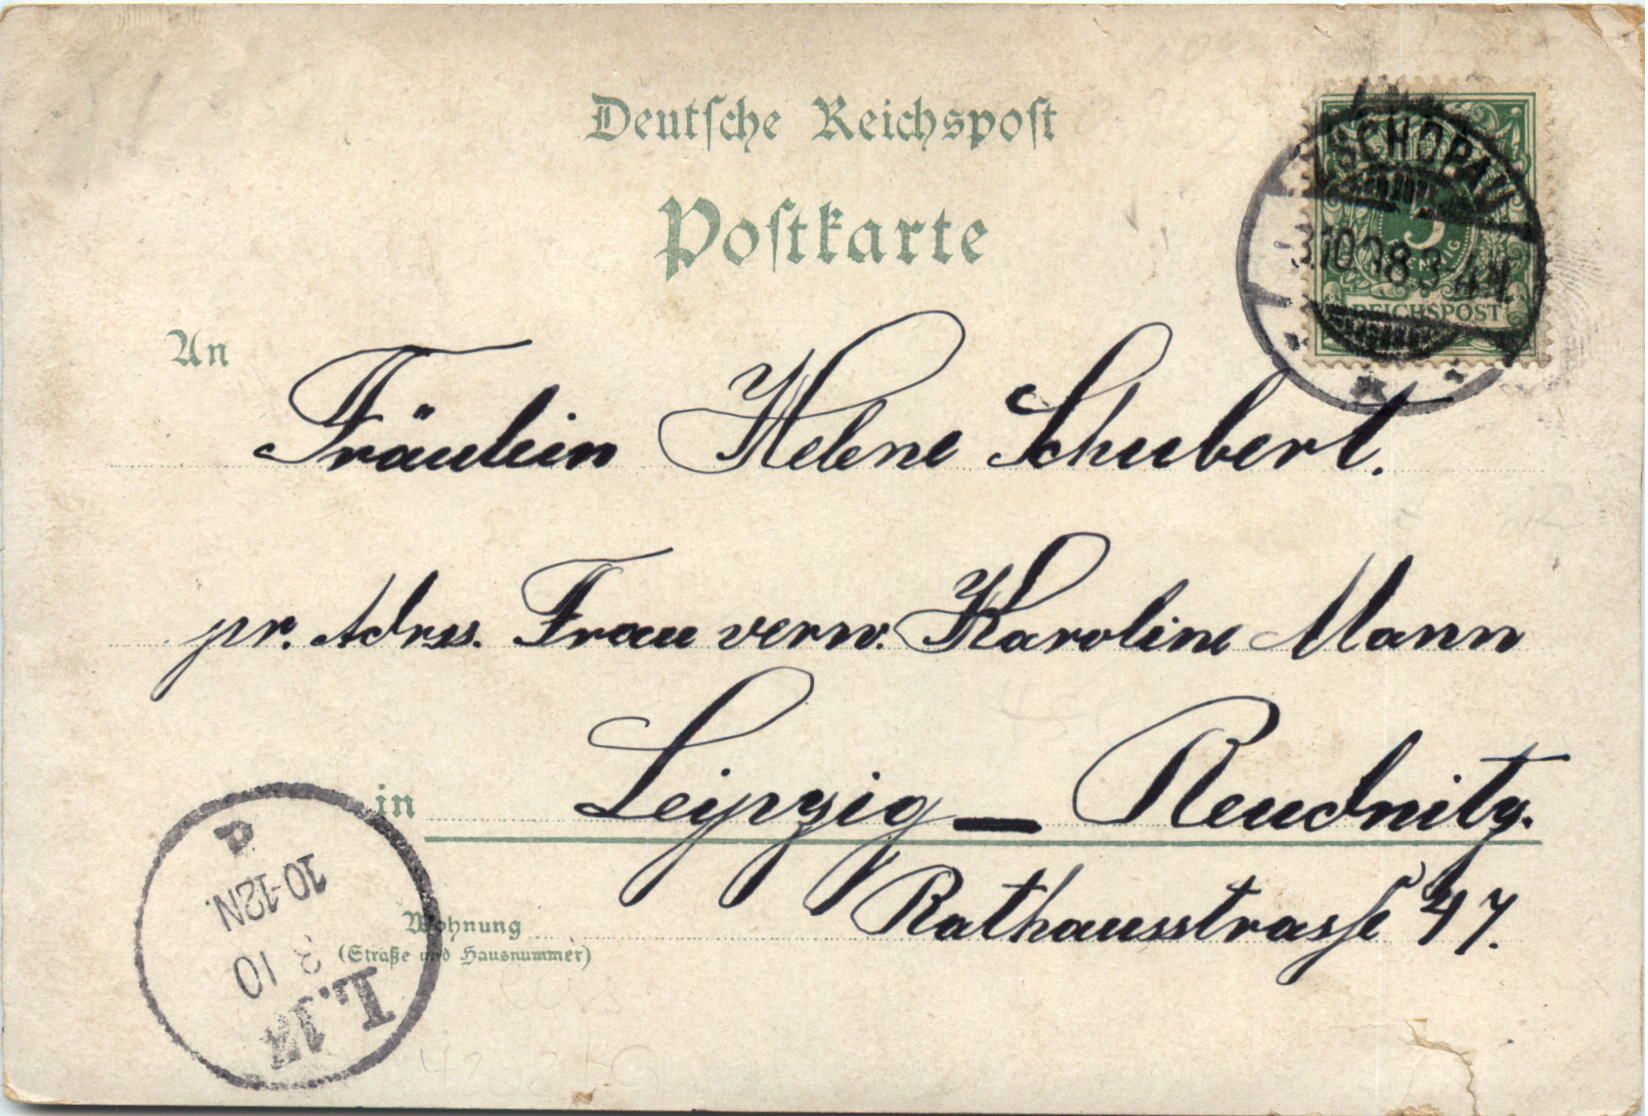 Deutſche Reichspoſt
Poſtkarte
ZSCHOPAU
3.10.98.3-4N.
5
REICHSPOST
An
Fräulein Helene Schubert.
pr. Adrss. Frau verw. Karoline Mann
in Leipzig – Reudnitz.
Rathausstrasſe 47.
Wohnung
(Straße und Hausnummer)
L.17
3 10
10-12N.